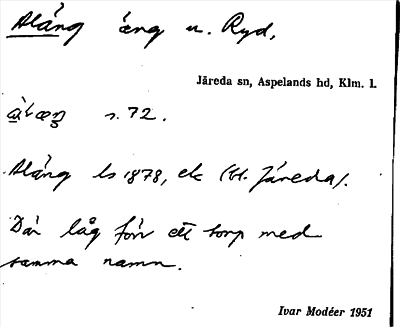 Aläng äng u. Ryd,
Järeda sn, Aspelands hd, Klm. l.
s. 72.
Aläng ls 1878, ek (bl. Järeda).
Där låg förr ett torp med
samma namn.
Ivar Modéer 1951